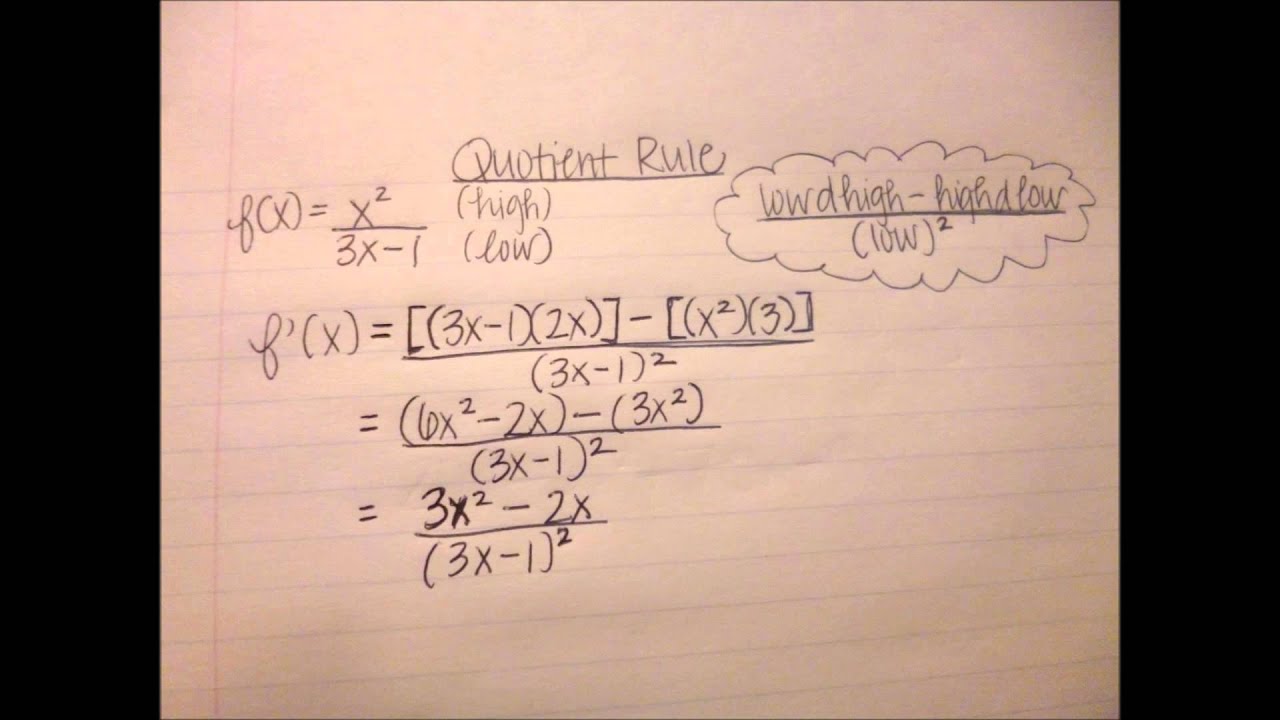 Quotient Rule
f(x) = x²
3x-1
(high)
(low)
low d high - high d low
(low)²
f'(x) = [(3x-1)(2x)] - [(x²)(3)]
(3x-1)²
= (6x²-2x) - (3x²)
(3x-1)²
= 3x² - 2x
(3x-1)²